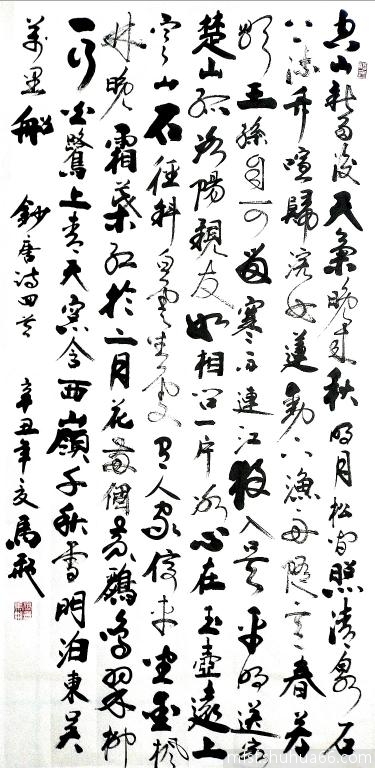 空山新雨後天氣晚來秋明月松間照清泉石
上流竹喧歸浣女蓮動下漁舟隨意春芳
歇王孫自可留寒雨連江夜入吳平明送客
楚山孤洛陽親友如相問一片冰心在玉壺遠上
寒山石徑斜白雲生處有人家停車坐愛楓
林晚霜葉紅於二月花兩個黃鸝鳴翠柳
一行白鷺上青天窗含西嶺千秋雪明泊東吳
萬里船 鈔唐诗四首 辛丑年夏馬